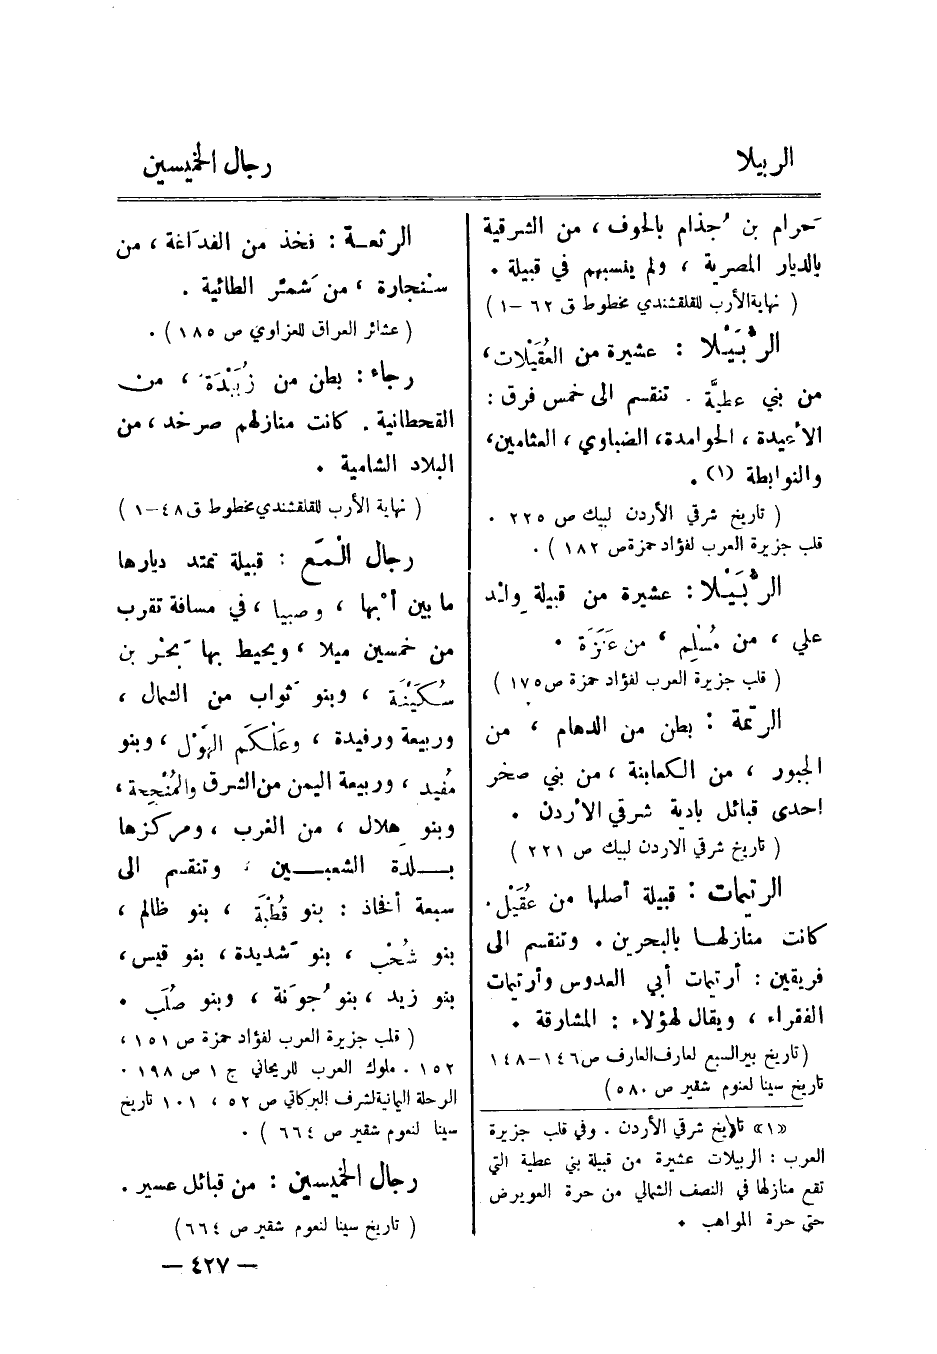 الربيلا
رجال الخميسين
حرام بن جُذام بالحوف ، من الشرقية
بالديار المصرية ، ولم ينسبهم في قبيلة .
( نهاية الأرب للقلقشندي مخطوط ق ٦٢ -١ )
الرُّبَيْلا : عشيرة من العُقَيْلات ،
من بني عطيَّة . تنقسم الى خمس فرق :
الأعيدة ، الحوامدة ، الضباوي ، العثامين ،
والنوابطة (١) .
( تاريخ شرقي الأردن لبيك ص ٢٢٥ .
قلب جزيرة العرب لفؤاد حمزة ص ١٨٢ ) .
الرُّبَيْلا : عشيرة من قبيلة ولد
علي ، من مُسْلِم ، من عَنَزَة .
( قلب جزيرة العرب لفؤاد حمزة ص ١٧٥ )
الرتمة : بطن من الدهام ، من
الجبور ، من الكعابنة ، من بني صخر
احدى قبائل بادية شرقي الأردن .
( تاريخ شرقي الاردن لبيك ص ٢٢١ )
الرتيمات : قبيلة أصلها من عُقَيْل .
كانت منازلهــا بالبحرين . وتنقسم الى
فريقين : أرتيمات أبي العدوس وأرتيمات
الفقراء ، ويقال لهؤلاء : المشارقة .
( تاريخ بير السبع لعارف العارف ص ١٤٦ - ١٤٨
تاريخ سينا لنعوم شقير ص ٥٨٠ )
«١» تاريخ شرقي الأردن . وفي قلب جزيرة
العرب : الربيلات عشيرة من قبيلة بني عطية التي
تقع منازلها في النصف الشمالي من حرة العويرض
حتى حرة المواهب .
الرثعــة : فخذ من الفداغة ، من
سنجارة ، من شمّر الطائية .
( عشائر العراق للعزاوي ص ١٨٥ ) .
رجاء : بطن من زُبَيْدَة ، من
القحطانية . كانت منازلهم صرخد ، من
البلاد الشامية .
( نهاية الأرب للقلقشندي مخطوط ق ٤٨ -١ )
رجال المَع : قبيلة تمتد ديارها
ما بين أبها ، وصبيا ، في مسافة تقرب
من خمسين ميلا ، ويحيط بها بحْر بن
سُكَيْنَة ، وبنو ثواب من الشمال ،
وربيعة ورفيدة ، وعَلْكَم الهَوْل ، وبنو
مُفيد ، وربيعة اليمن من الشرق والمُنْجِحة ،
وبنو هِلال ، من الغرب ، ومركزها
بــلدة الشعبــين ، وتنقسم الى
سبعة أفخاذ : بنو قُطْبَة ، بنو ظالم ،
بنو شُحْب ، بنو شديدة ، بنو قيس ،
بنو زيد ، بنو جُونة ، وبنو صُلَب .
( قلب جزيرة العرب لفؤاد حمزة ص ١٥١ ،
١٥٢ . ملوك العرب للريحاني ج ١ ص ١٩٨ .
الرحلة اليمانية لشرف البركاتي ص ٥٢ ، ١٠١ تاريخ
سينا لنعوم شقير ص ٦٦٤ ) .
رجال الخميسين : من قبائل عسير .
( تاريخ سينا لنعوم شقير ص ٦٦٤ )
— ٤٢٧ —